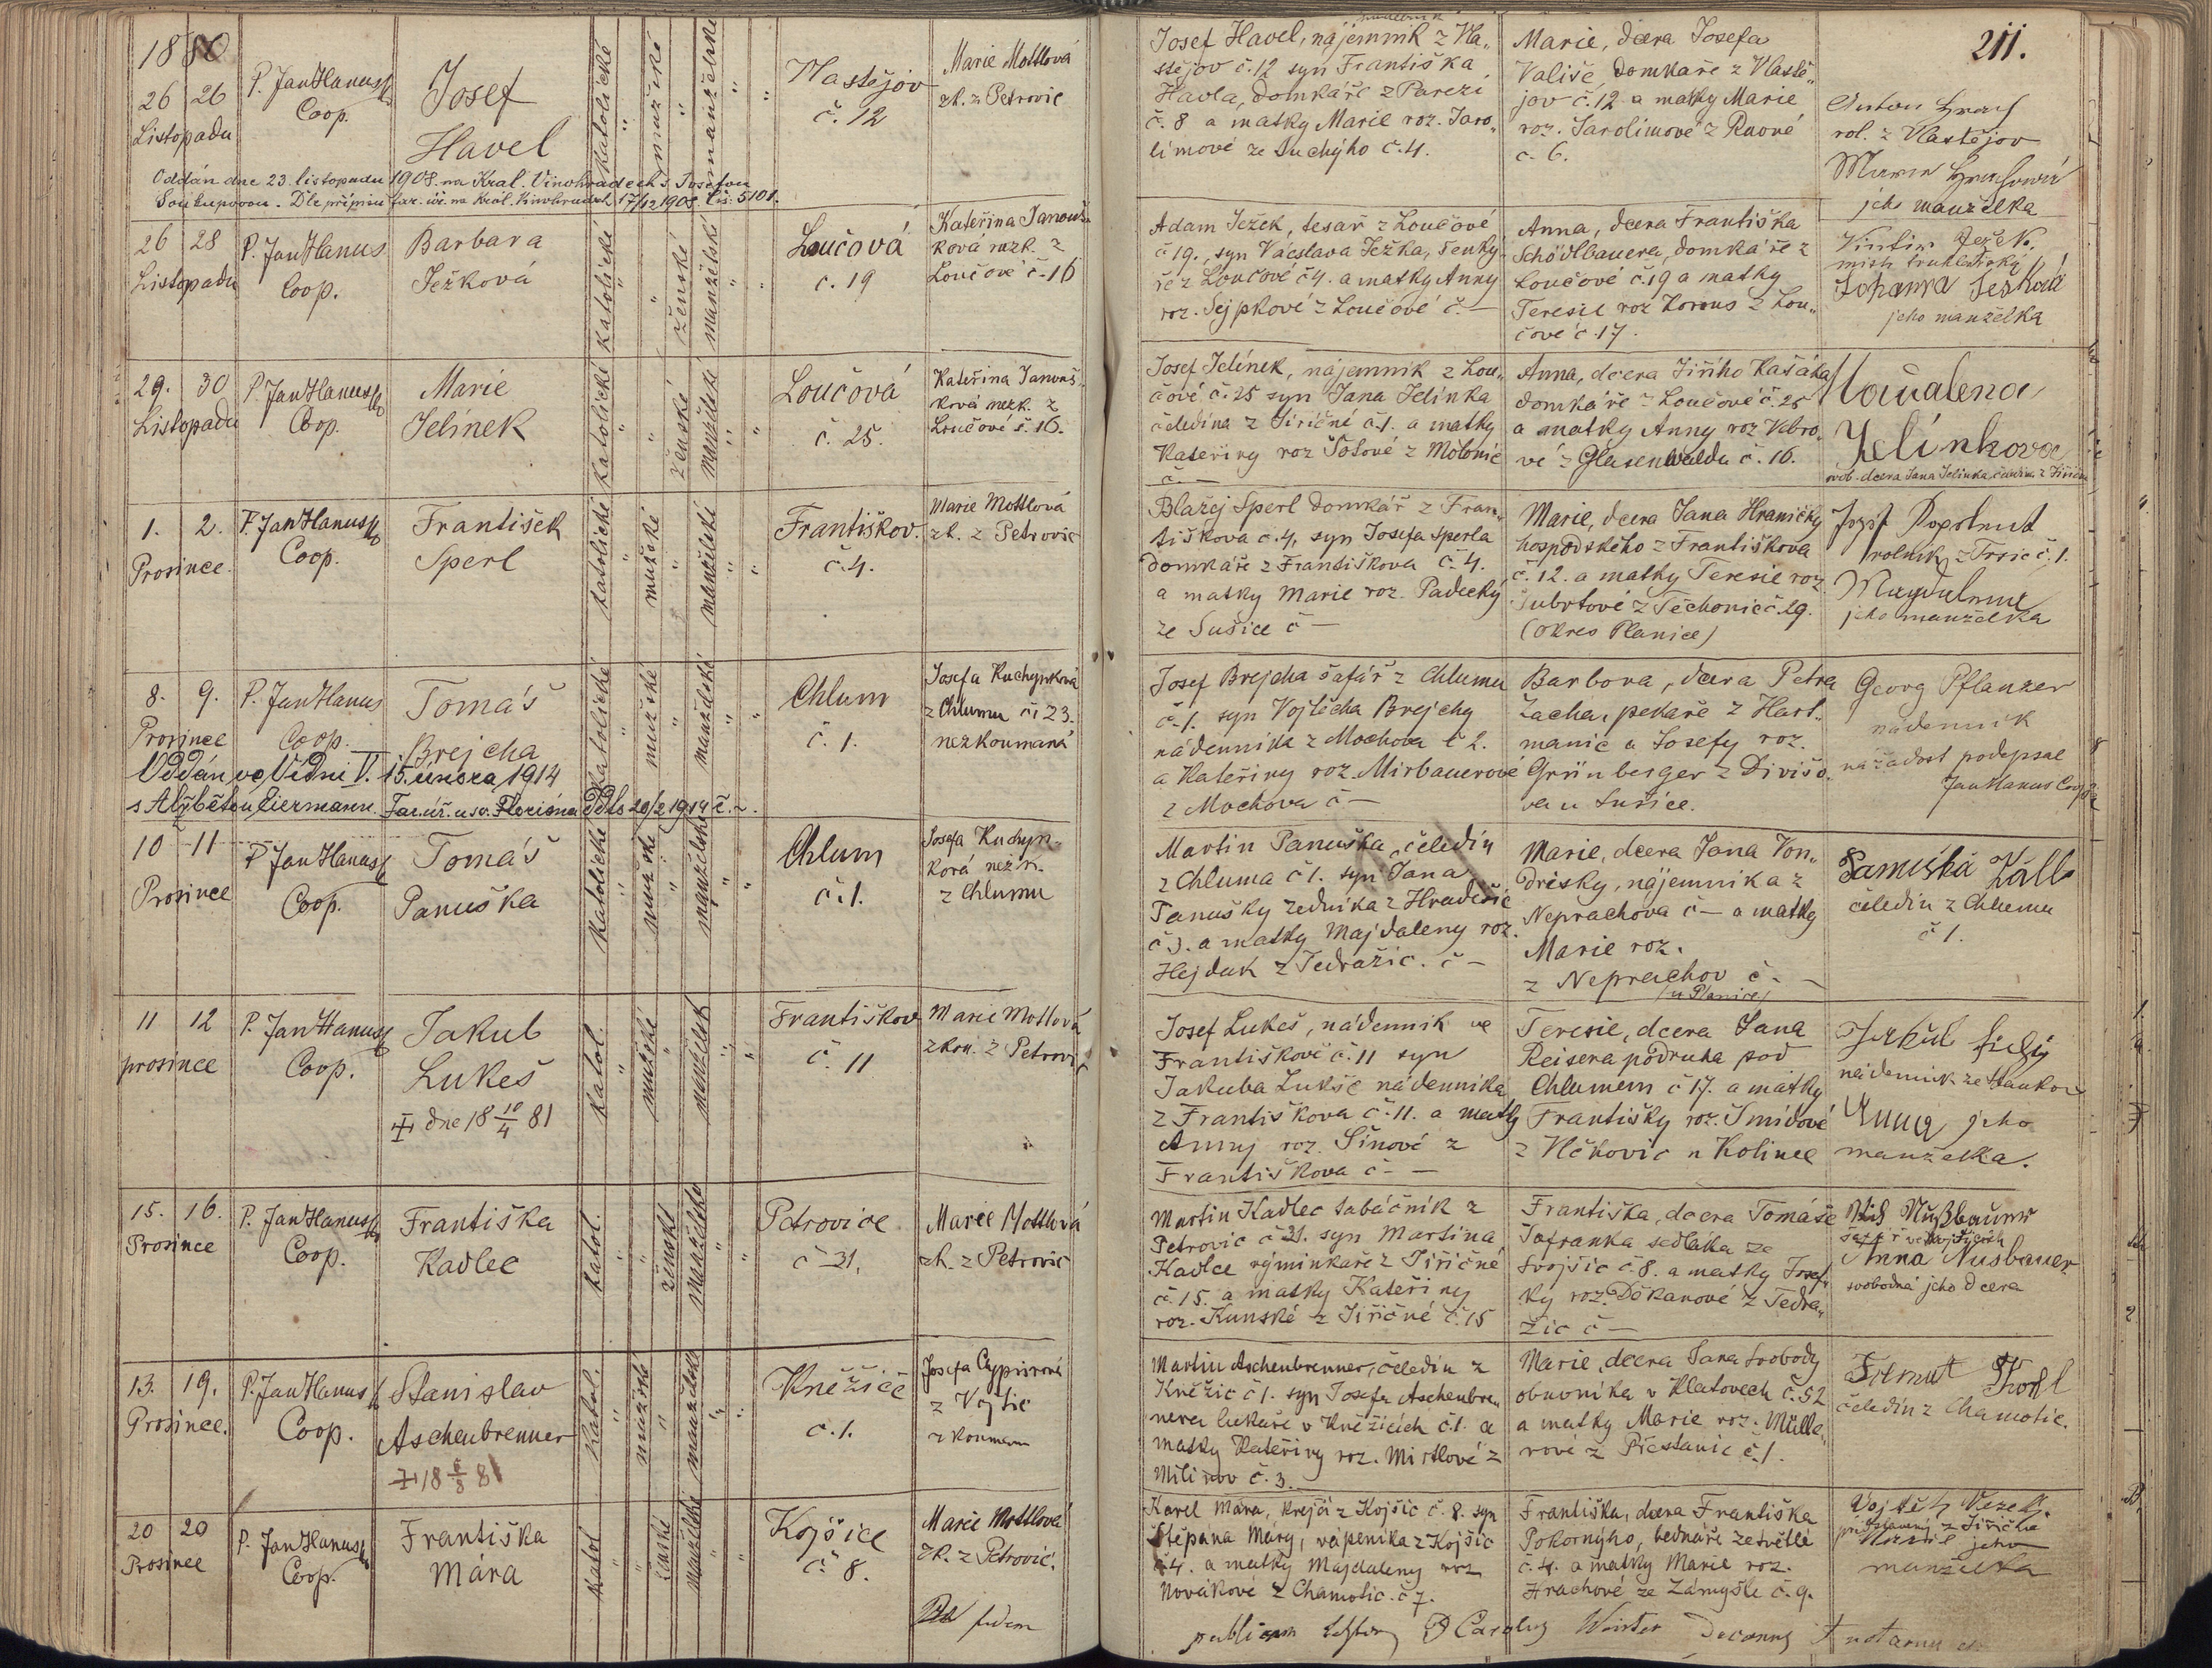 1880
211.
26 26
Listopadu
P. Jan Hanus
Coop.
Josef
Havel
katolické
mužské
manželské
Vlastějov
č. 12
Marie Mottlová
zk. z Petrovic
Josef Havel, nájemník z Vla„
stějov č. 12 syn Františka
Havla, domkáře z Parezí
č. 8 a matky Marie roz. Jaro„
límové ze Suchýho č. 4.
Marie, dcera Josefa
Vališe, domkaře z Vlastě„
jov č. 12 a matky Marie
roz. Jarolímové z Rvové
č. 6.
Anton
rol. z Vlastějov
jeho manželka
Oddán dne 23. listopadu 1908. na Král. Vinohradech s Josefou
Soukupovou. Dle přípisu far. úř. na Král. Vinohradech 17/12 1908. čís. 5101.
26 28
Listopadu
P. Jan Hanus
Coop.
Barbara
Ježková
katolické
ženské
manželské
Loučová
č. 19
Kateřina Janouš„
ková nezk. z
Loučové č. 16
Adam Ježek, tesař z Loučové
č 19., syn Václava Ježka, 
ře z Loučové č 4. a matky Anny
roz. Sejpkové z Loučové č. —
Anna, dcera Františka
Schödlbauera, domkáře z
Loučové č. 19 a matky
Teresie roz Lorenz z Lou„
čové č. 17.
Ježek.
Johanna Ježková
jeho manželka
29. 30
Listopadu
P. Jan Hanus
Coop.
Marie
Jelínek
katolické
ženské
manželské
Loučová
č. 25.
Kateřina Janouš„
ková nezk. z
Loučové č. 16.
Josef Jelínek, nájemník z Lou„
čové č. 25 syn Jana Jelínka
čeledína z Jiřičné č. 1. a matky
Kateřiny roz Šotové z Mlčonic
č. —
Anna, dcera Jiřího Kašáka
domkáře z Loučové č. 25
a matky Anny roz Vebro„
vé z Glasenwaldu č. 16.
Majdalena
Jelínkova
svob. dcera Jana Jelínka, čeledína z Jiřičné
1. 2.
Prosince.
P. Jan Hanus
Coop.
František
Sperl
katolické
mužské
manželské
Františkov.
č. 4.
Marie Mottlová
zk. z Petrovic
Blažej Sperl domkář z Fran„
tiškova č. 4, syn Josefa Sperla
domkáře z Františkova č. 4.
a matky Marie roz. Padecký
ze Sušice č —
Marie, dcera Jana Hraničky
hospodského z Františkova
č. 12. a matky Teresie roz.
Šubrtové z Těchonic č. 29.
(okres Planice)
rolník z Trsic č. 1.
jeho manželka
8. 9.
Prosince
P. Jan Hanus
Coop.
Tomáš
Brejcha
katolické
mužské
manželské
Chlum
č. 1.
Josefa Kuchynková
z Chlumu č. 23.
nezkoumaná
Josef Brejcha šafář z Chlumu
č. 1. syn Vojtěcha Brejchy
nádenníka z Mochova č 2.
a Kateřiny roz. Mirbauerové
z Mochova č —
Barbora, dcera Petra
Zacha, pekaře z Hart„
manic a Josefy roz.
Grünberger z Divišo„
va u Sušice.
Georg Pflanzer
nádenník
na žádost podepsal
Jan Hanus Coop
Oddán ve Vídni V. 15. února 1914
s Alžbětou Eiermann. Far. úř. u sv. Floriána Ddto 20/2 1914 č. ~.
10 11
Prosince
P Jan Hanus
Coop.
Tomáš
Panuška
katolické
mužské
manželské
Chlum
č. 1.
Josefa Kuchyn„
ková nezk.
z Chlumu
Martin Panuška, čeledín
z Chluma č 1. syn Jana
Panušky zedníka z Hradešic
č 3. a matky Majdaleny roz.
Hejduk z Tedražic. č —
Marie, dcera Jana Von„
drisky, nájemníka z
Neprachova č — a matky
Marie roz.
z Neprachov č. —
(u Planice)
Panuška
čeledín z Chlumu
č 1.
11 12
prosince
P. Jan Hanus
Coop.
Jakub
Lukeš
dne 18 10/4 81
katol.
mužské
manželské
Františkov
č. 11
Marie Mottlová
zkou. z Petrovic
Josef Lukeš, nádenník ve
Františkově č. 11 syn
Jakuba Lukše nádenníka
z Františkova č. 11. a matky
Anny roz. Šinové z
Františkova č. —
Teresie, dcera Jana
Reisera podruha pod
Chlumem č 17. a matky
Františky roz. Šmídové
z Vlčkovic u Kolince
jeho
manželka.
15. 16.
Prosince
P. Jan Hanus
Coop.
Františka
Kadlec
katol.
ženské
manželské
Petrovice
č 31.
Marie Mottlová
zk. z Petrovic
Martin Kadlec tabáčník z
Petrovic č 31. syn Martina
Kadlce výminkaře z Jiřičné
č. 15. a matky Kateřiny
roz. Kunské z Jiřičné č. 15
Františka, dcera Tomáše
Šafranka sedláka ze
Svojšic č. 8. a matky Josef„
ky roz. Děkanové z Tedra„
žic č —
Nußbauer
Anna Nusbauer
svobodná jeho dcera
13. 19.
Prosince.
P. Jan Hanus
Coop.
Stanislav
Aschenbrenner
18 6/8 81
katol.
mužské
manželské
Kněžice
č. 1.
z Vojtic
zkoumaná
Martin Aschenbrenner, čeledín z
Kněžic č 1. syn Josefa Aschenbren„
nera lukaře v Kněžicích č. 1. a
matky Kateřiny roz. Mirtlové z
Milinov č. 3.
Marie, dcera Jana Svobody
obuvníka v Klatovech č. 52
a matky Marie roz. Mülle„
rové z Přestanic č. 1.
čeledín z Chamotic.
20 20
Prosince
P. Jan Hanus
Coop.
Františka
Mára
katol.
ženské
manželské
Kojšice
č. 8.
Marie Mottlová
zk. z Petrovic.
Karel Mára, krejčí z Kojšic č. 8. syn
Štěpána Máry, vápeníka z Kojšic
č 4. a matky Majdaleny roz
Novákové z Chamotic. č 7.
Františka, dcera Františka
Pokorného, bednáře ze Světlé
č. 4. a matky Marie roz.
Hrachové ze Zámyšle č. 9.
Vojtěch
jeho
manželka
fidem
publicam Carolus Winter Decanus